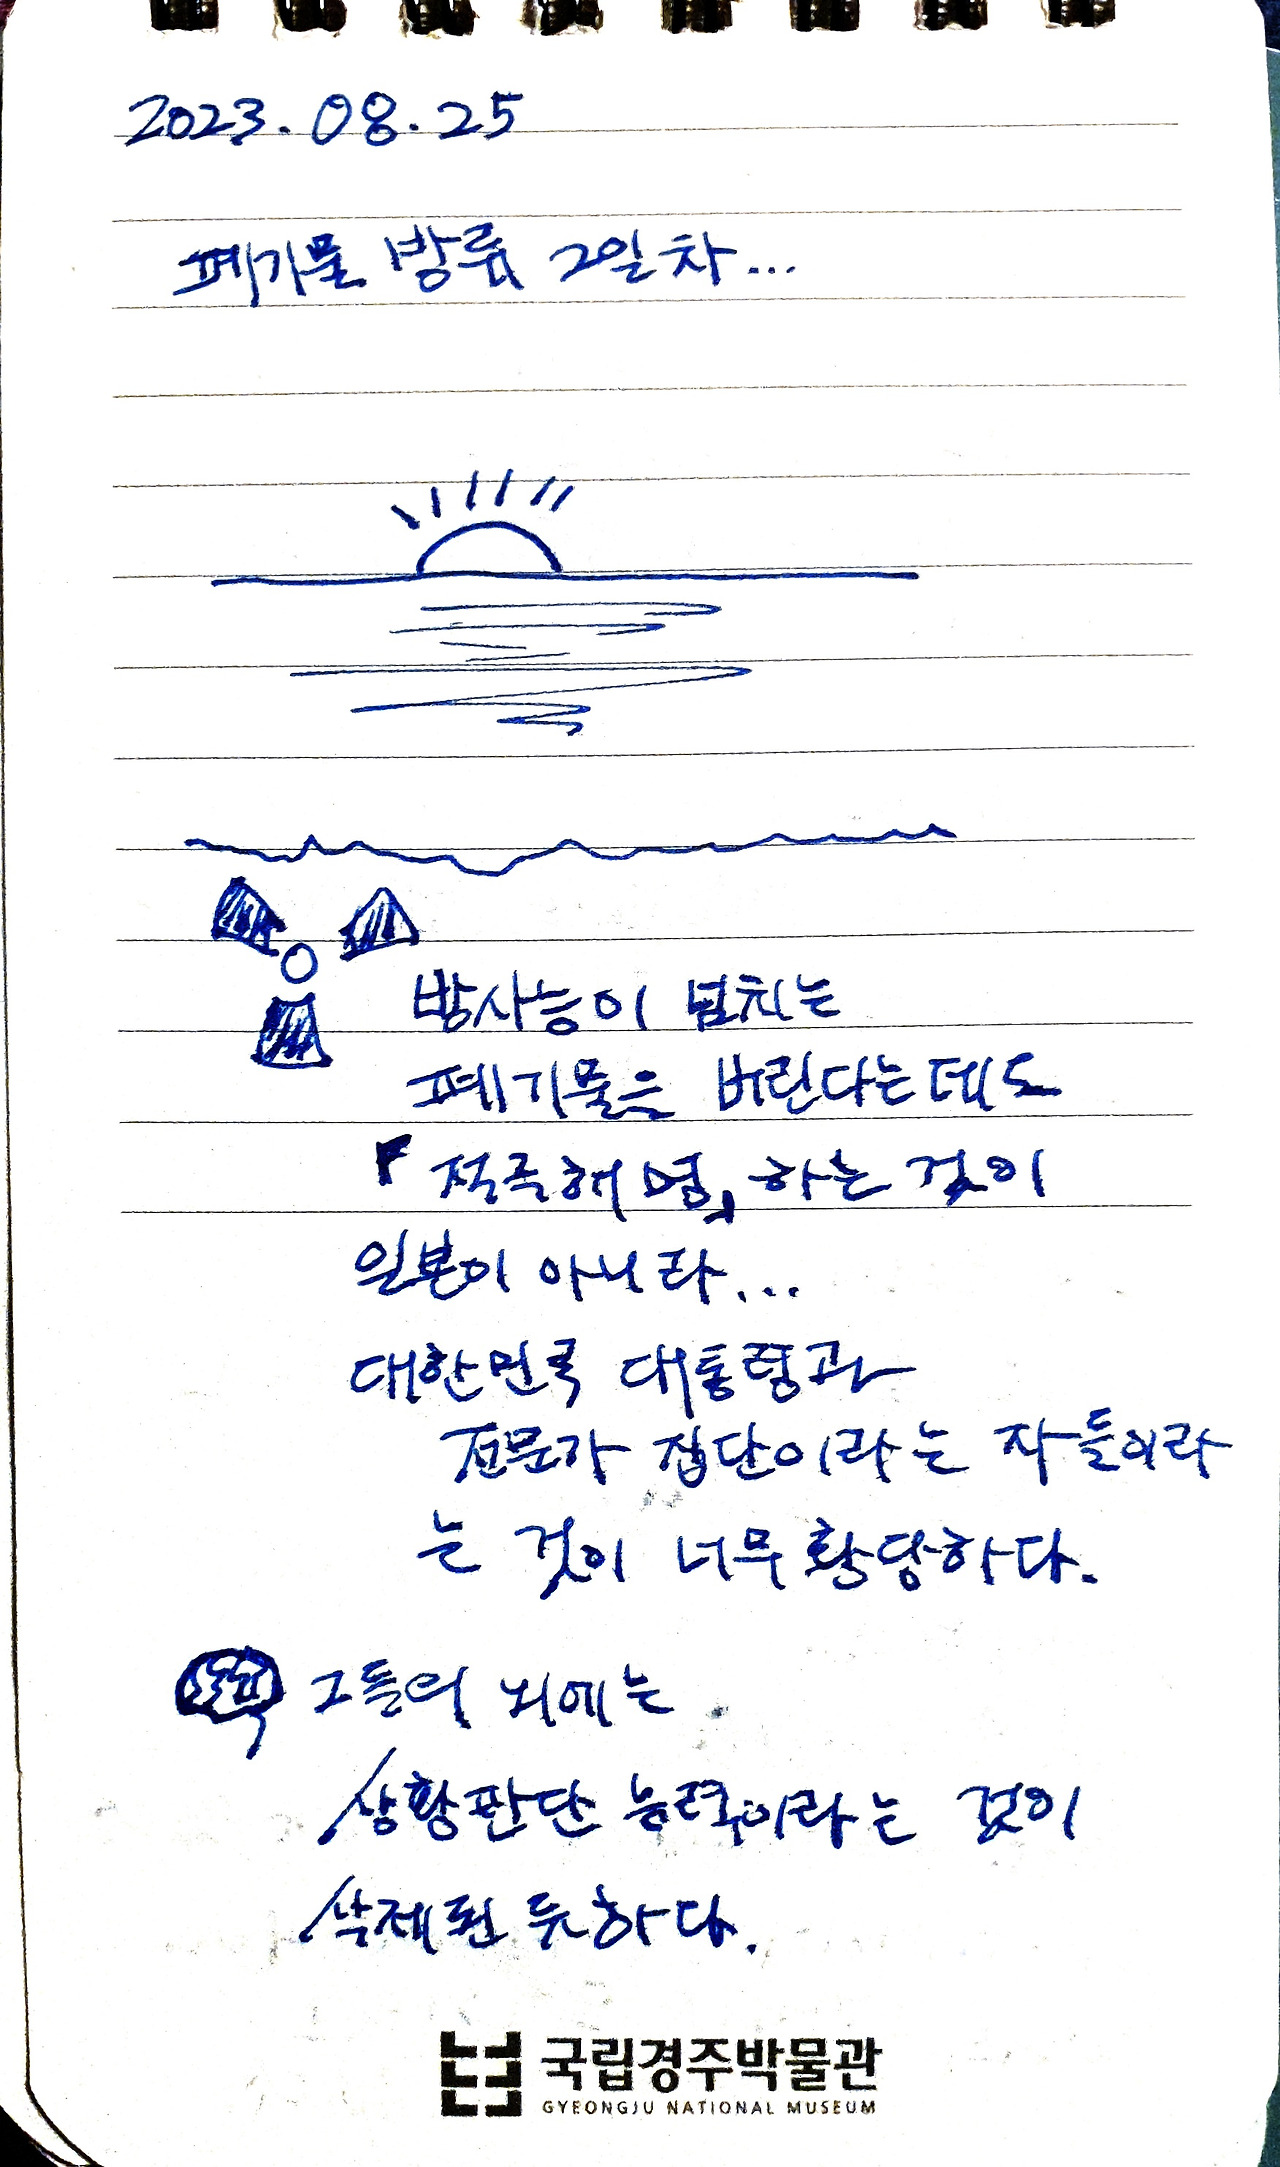 2023.08.25
폐기물 방류 2일차...
방사능이 넘치는
폐기물을 버린다는데도
「적극해명」하는 것이
일본이 아니라...
대한민국 대통령과
전문가 집단이라는 자들이라
는 것이 너무 황당하다.
그들의 뇌에는
상황판단 능력이라는 것이
삭제된 듯하다.
국립경주박물관
GYEONGJU NATIONAL MUSEUM